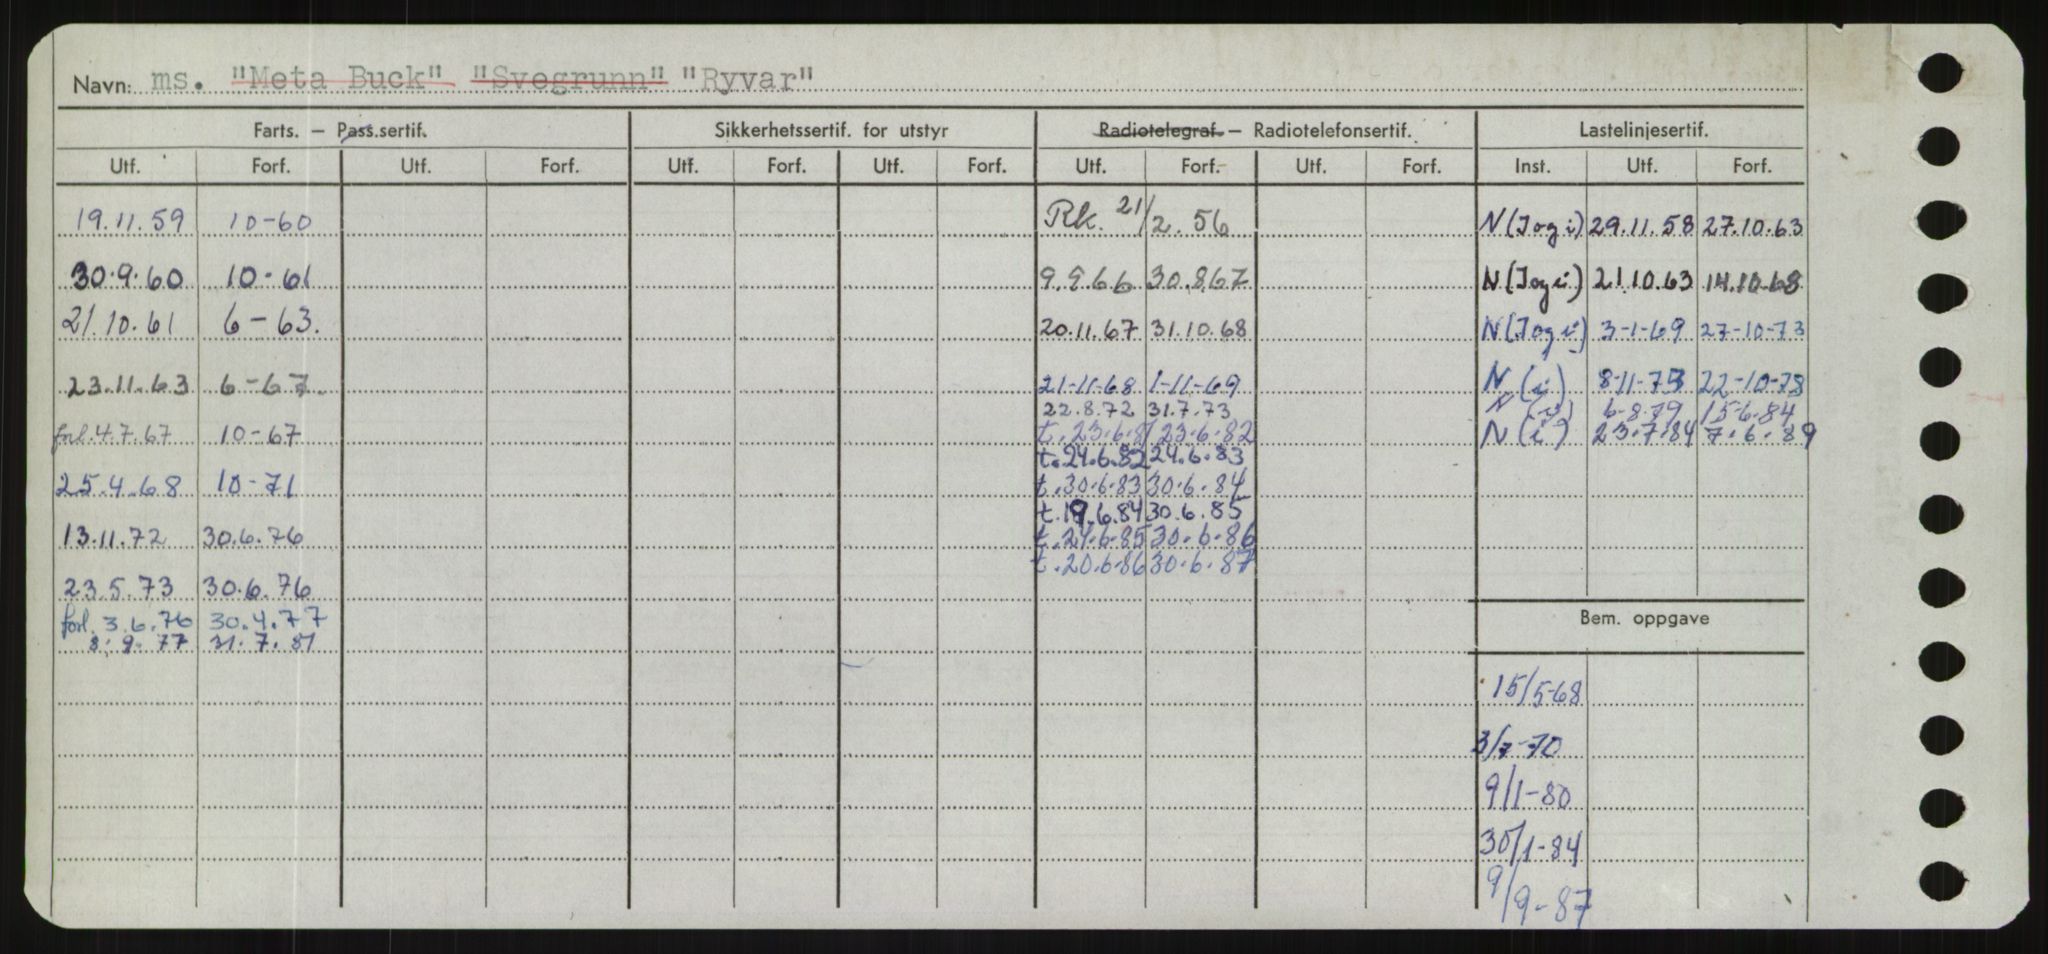 Navn: ms. "Meta Buck" "Svegrunn" "Ryvar"
Farts. – Pass.sertif. Sikkerhetssertif. for utstyr Radiotelegraf. – Radiotelefonsertif. Lastelinjesertif.
Utf. Forf. Utf. Forf. Utf. Forf. Utf. Forf. Utf. Forf. Utf. Forf. Inst. Utf. Forf.
19.11.59 10-60 Rk. 21/2.56 N (Jog i) 29.11.58 27.10.63
30.9.60 10-61 9.9.66 30.8.67 N (Jog i) 21.10.63 14.10.68
21.10.61 6-63. 20.11.67 31.10.68 N (Jog i) 3-1-69 27-10-73
23.11.63 6-67. 21-11-68 1-11-69 N (i) 8-11-73 22-10-78
22.8.72 31.7.73 N (i) 6-8-79 15-6-84
forl. 4.7.67 10-67 t. 23.6.81 23.6.82 N (i) 23.7.84 7.6.89
t. 24.6.82 24.6.83
25.4.68 10-71 t. 30.6.83 30.6.84
t. 19.6.84 30.6.85
13.11.72 30.6.76 t. 24.6.85 30.6.86
t. 20.6.86 30.6.87
23.5.73 30.6.76
forl. 3.6.76 30.4.77 Bem. oppgave
8.9.77 31.7.81
15/5-68
3/7-70
9/1-80
30/1-84
9/9-87